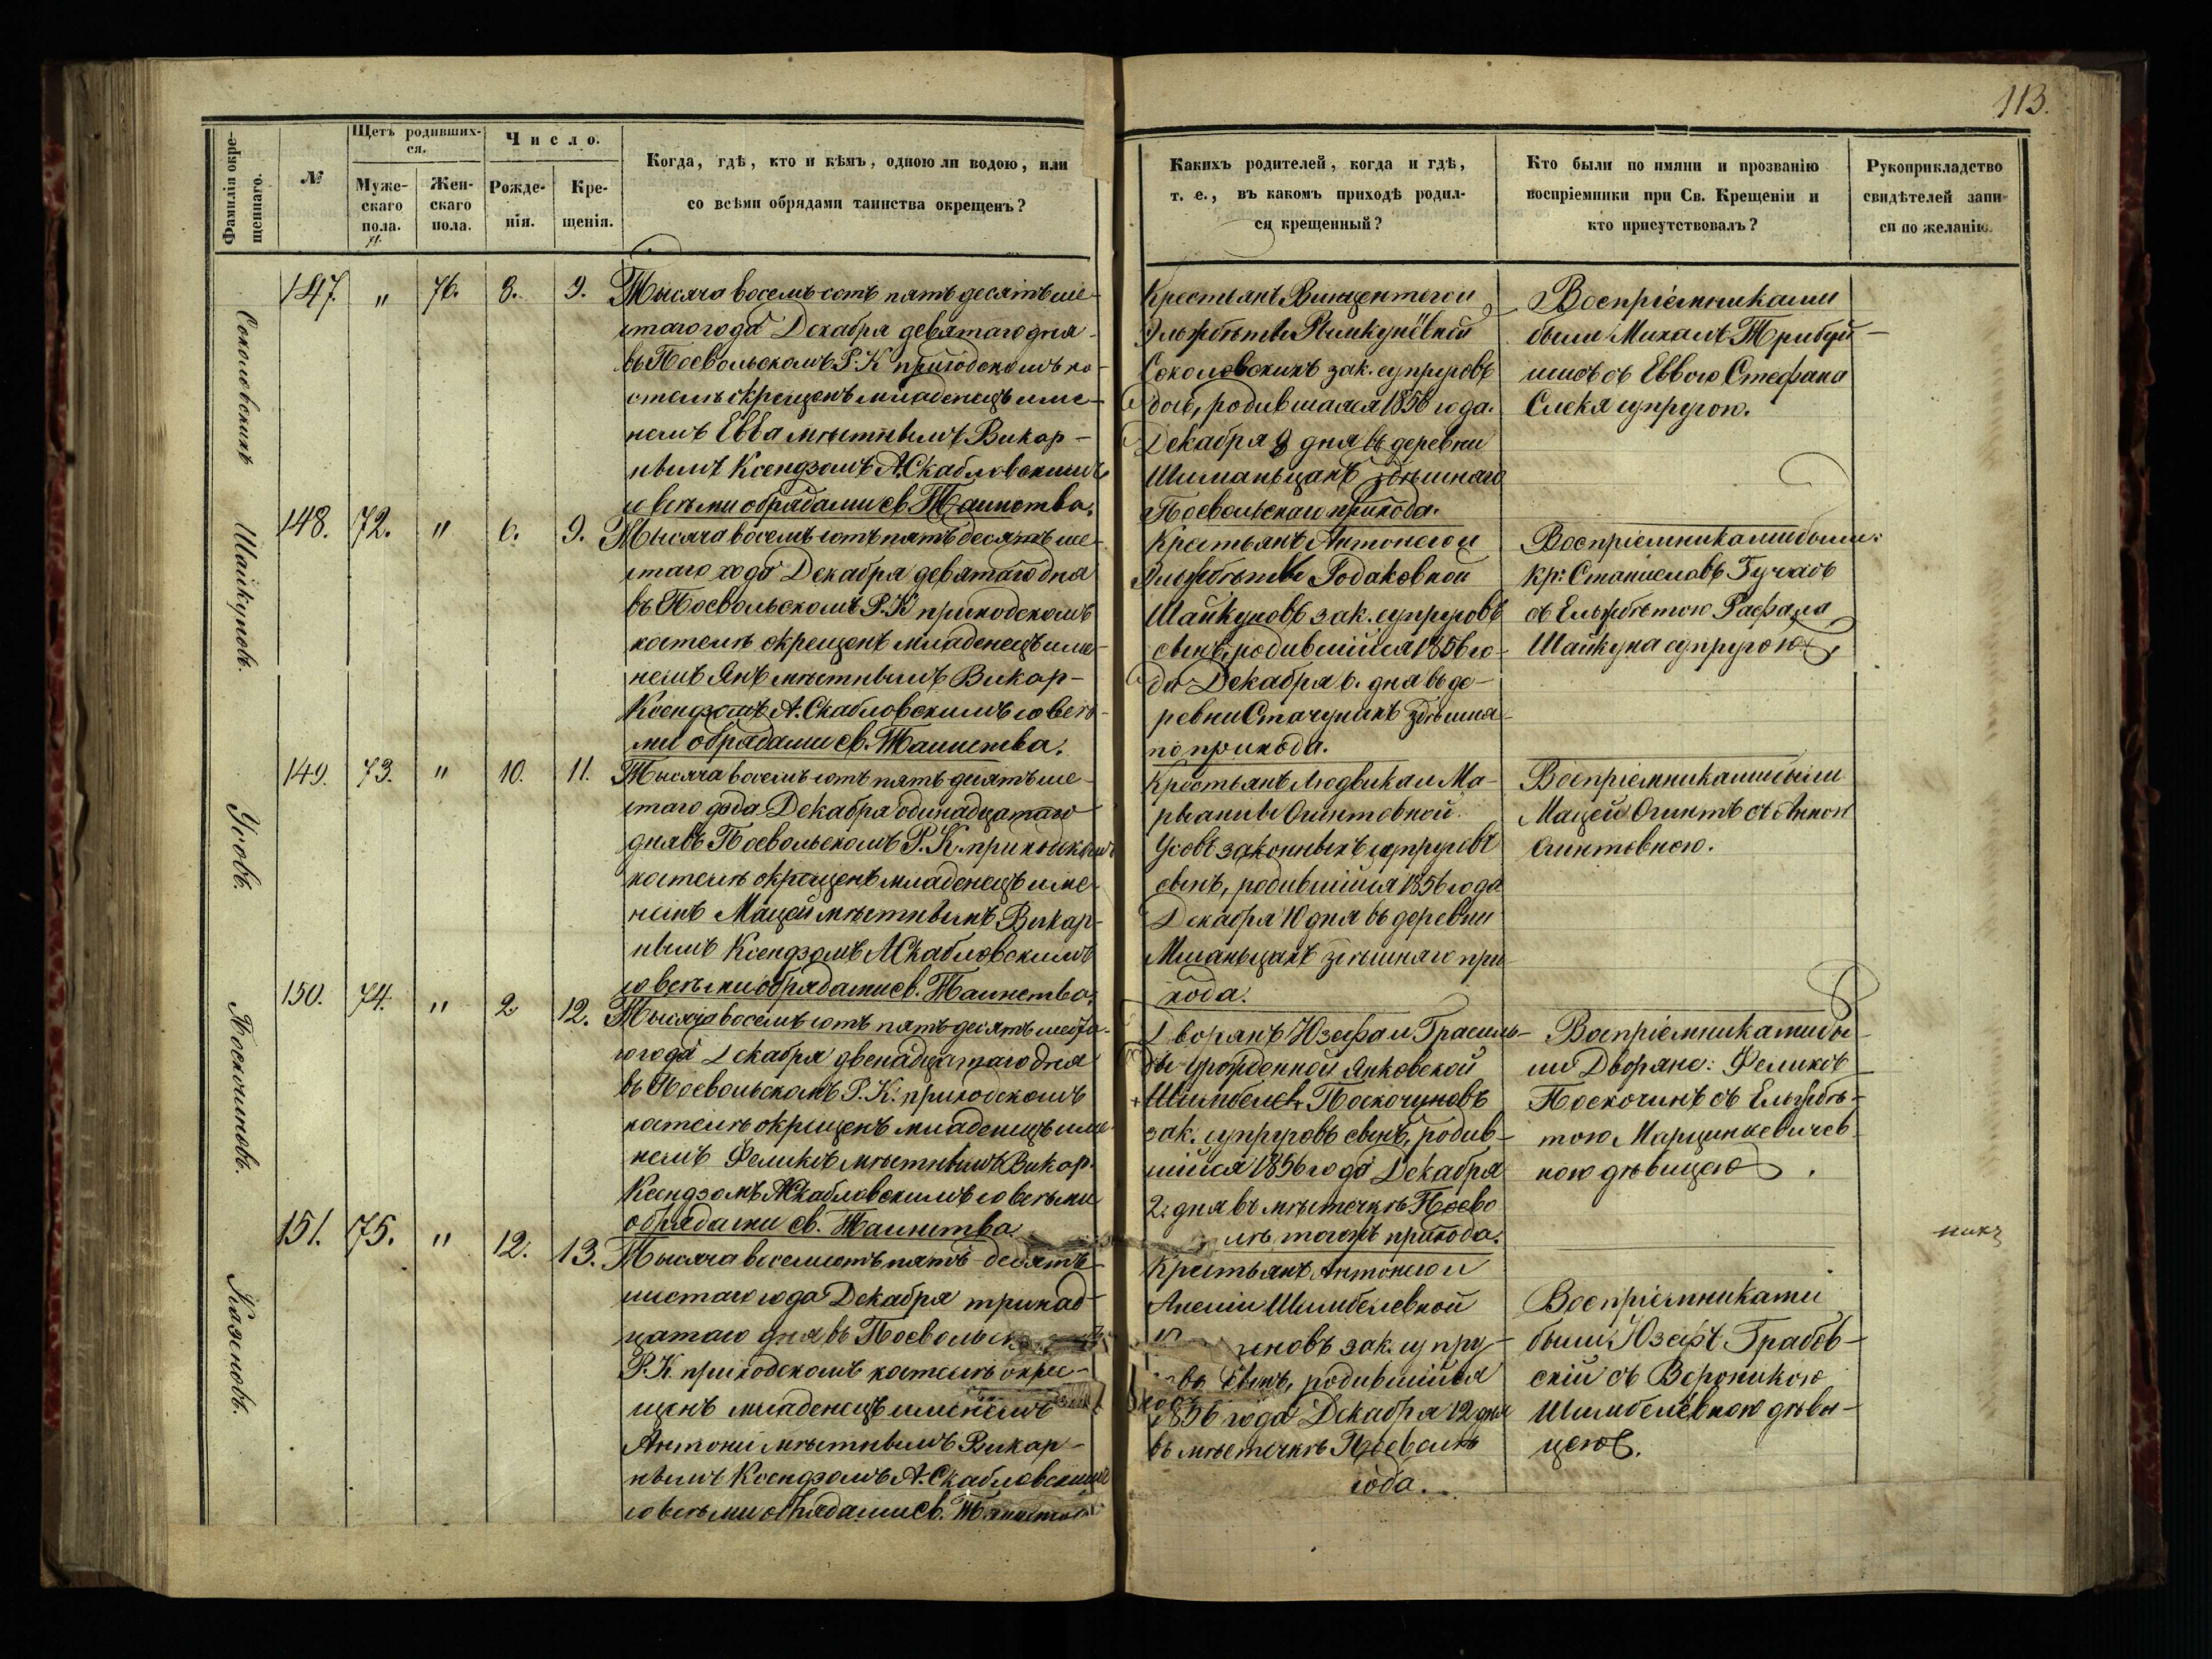 113.
Фамилія окре-
щеннаго.
№
Щетъ родивших-
ся.
Муже-
скаго
пола.
Жен-
скаго
пола.
Число.
Рожде-
нія.
Кре-
щенія.
Когда, гдѣ, кто и кѣмъ, одною ли водою, или
со всѣми обрядами таинства окрещенъ?
Какихъ родителей, когда и гдѣ,
т. е., въ какомъ приходѣ родил-
ся крещенный?
Кто были по имяни и прозванію
воспріемники при Св. Крещеніи и
кто присутствовалъ?
Рукоприкладство
свидѣтелей запи-
си по желанію.
Соколовскихъ
147. " 76. 8. 9.
Тысяча восемь сотъ пятьдесятъ ше-
стаго года Декабря девятаго дня
въ Посвольскомъ Р. К приходскомъ ко-
стелѣ окрещенъ младенецъ име-
немъ Евва мѣстнымъ Викар-
нымъ Ксендзомъ А. Скабловскимъ
со всѣми обрядами св. Таинства.
Крестьянъ Винцентого и
Эльжбѣты
Соколовскихъ зак. супруговъ
дочь, родившаяся 1856 года.
Декабря 8 дня въ деревни
здѣшнаго
Посвольскаго прихода.
Воспріемниками
были Михалъ
съ Еввою Стефана
супругою.
Шайкуновъ.
148. 72. " 6. 9.
Тысяча восемь сотъ пятьдесятъ ше-
стаго года Декабря девятаго дня
въ Посвольскомъ Р. К приходскомъ
костелѣ окрещенъ младенецъ име-
немъ Янъ мѣстнымъ Викар-
Ксендзомъ А. Скабловскимъ со всѣ-
ми обрядами св. Таинства.
Крестьянъ Антонего и
Эльжбѣты Годаковной
Шайкуновъ зак. супруговъ
сынъ, родившійся 1856 го-
да Декабря 6. дня въ де-
ревни Стачунахъ здѣшна-
го прихода.
Воспріемниками были:
Кр: Станиславъ
съ Ельжбѣтою Рафала
Шайкуна супругою.
Усовъ.
149. 73. " 10. 11.
Тысяча восемь сотъ пятьдесятъ ше-
стаго года Декабря одинадцатаго
дня въ Посвольскомъ Р. К. приходскомъ
костелѣ окрещенъ младенецъ име-
немъ Мацей мѣстнымъ Викар-
нымъ Ксендзомъ А Скабловскимъ
со всѣми обрядами св. Таинства.
Крестьянъ Людвика и Ма-
рьанны Огинтовной
Усовъ законныхъ супруговъ
сынъ, родившійся 1856 года
Декабря 10 дня въ деревни
здѣшняго при-
хода.
Воспріемниками были
Мацей Огинтъ съ Анною
Огинтовною.
Поскочиновъ.
150. 74. " 2 12.
Тысяча восемь сотъ пятьдесятъ шеста-
го года Декабря двенадцатаго дня
въ Посвольскомъ Р. К. приходскомъ
костелѣ окрещенъ младенецъ име-
немъ Феликсъ мѣстнымъ Викар.
Ксендзомъ А Скабловскимъ со всѣми
обрядами св. Таинства.
Дворянъ Юзефа и Грасиль-
ды урожденной Янковской
Поскочиновъ
зак. супруговъ сынъ, родив-
шійся 1856 года Декабря
2. дня въ мѣстечкѣ Посво
лѣ, тогожъ прихода.
Воспріемниками бы-
ли Дворяне: Феликсъ
Поскочинъ съ Ельжбѣ-
тою Марцинкевичев
ною дѣвицею.
Казеновъ.
151. 75. " 12. 13.
Тысяча восемсотъ пять-десятъ
шестаго года Декабря тринад-
цатаго дня въ
Р. К. приходскомъ костелѣ окре-
щенъ младенецъ именемъ
Антони мѣстнымъ Викар-
нымъ Ксендзомъ А. Скабловскимъ
со всѣми обрядами св.
Крестьянъ Антонего и
Анеліи Шимбелевной
зак. супру-
сынъ, родившійся
1856 года Декабря 12 дня
въ мѣстечкѣ Посволѣ
Воспріемниками
были Юзефъ Грабов-
скій съ Вероникою
Шимбелевною дѣви-
цею.